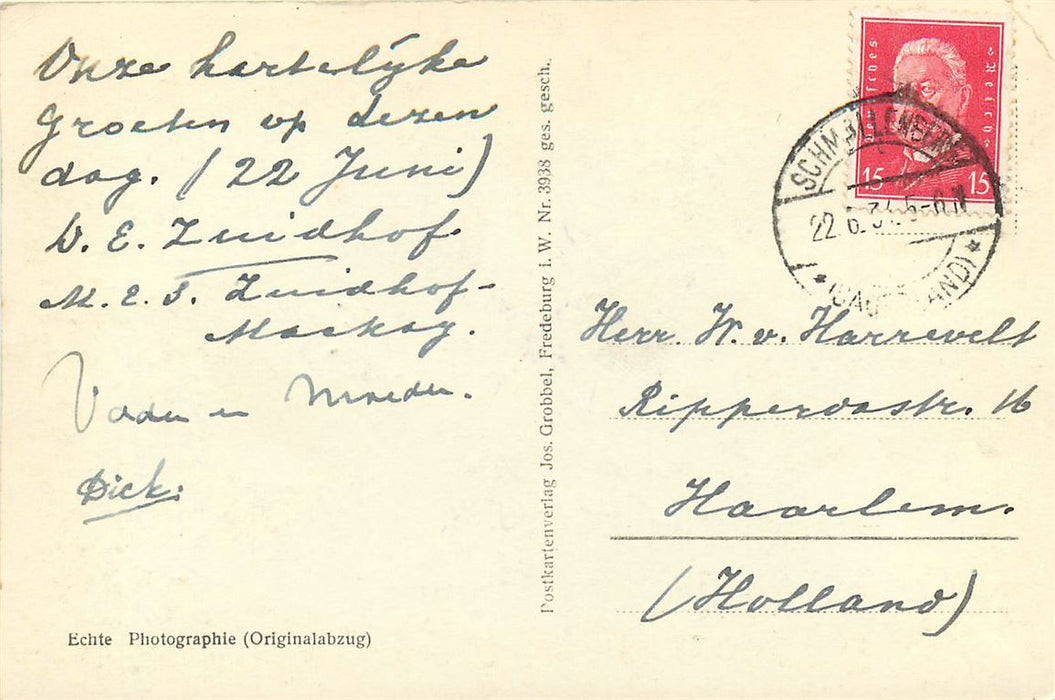 Onze hartelijke
groeten op dezen
dag. (22 Juni)
W. E. Zuidhof
M. E. F. Zuidhof-
Mackay.
Vader en Moeder.
Dick.
Echte Photographie (Originalabzug)
Postkartenverlag Jos. Grobbel, Fredeburg i. W. Nr. 3938 ges. gesch.
Deutsches Reich
15 15
SCHMALLENBERG
22.6.31. 5-6 N
* (SAUERLAND) *
Herr. W. v. Harrevelt
Ripperdastr. 16
Haarlem.
(Holland)